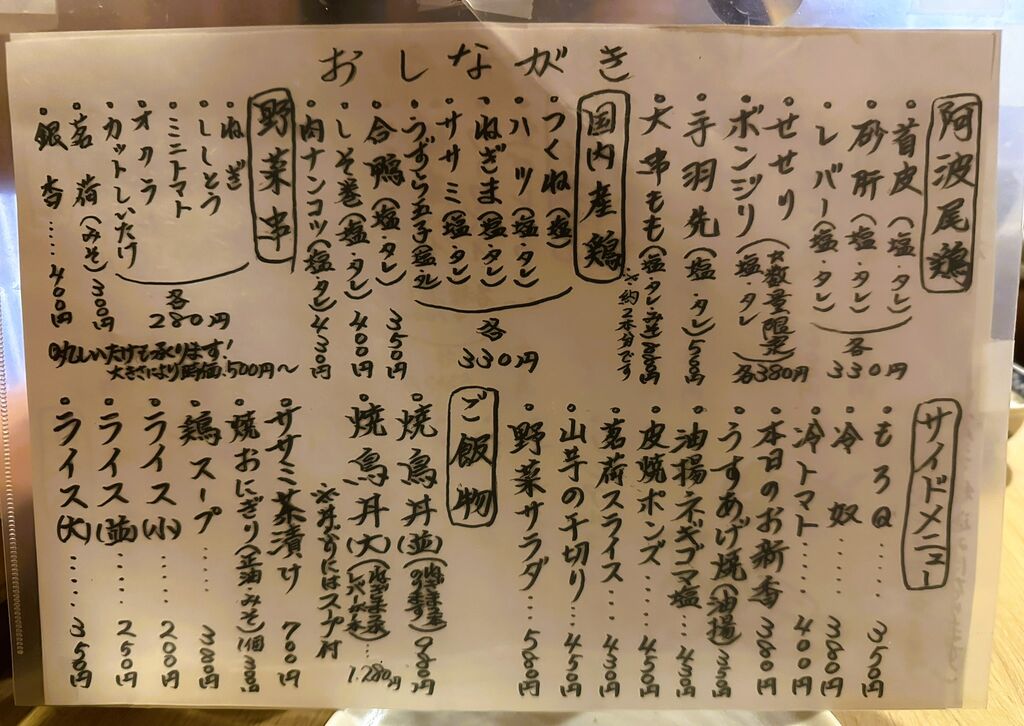 おしながき
阿波尾鶏
・首皮(塩・タレ)
・砂肝(塩・タレ)
・レバー(塩・タレ)
各330円
・せせり
・ボンジリ(塩・タレ)
(☆数量限定)
各380円
・手羽先(塩・タレ)500円
・大串もも(塩・タレ・みそ)
※約2本分です
国内産鶏
・つくね(塩)
・ハツ(塩・タレ)
・ねぎま(塩・タレ)
・ササミ(塩・タレ)
・うずら玉子(塩・タレ)
各330円
・合鴨(塩・タレ)350円
・しそ巻(塩・タレ)400円
・肉ナンコツ(塩・タレ)430円
野菜串
・ねぎ
・ししとう
・ミニトマト
・オクラ
・カットしいたけ
各280円
・茗荷(みそ)300円
・銀杏……400円
◎丸しいたけも承ります!
大きさにより時価.500円〜
サイドメニュー
・もろQ……350円
・冷奴……380円
・冷トマト……400円
・本日のお新香 380円
・うすあげ焼(油揚)350円
・油揚ネギゴマ塩…430円
・皮焼ポンズ……450円
・茗荷スライス……430円
・山芋の千切り……450円
・野菜サラダ……580円
ご飯物
・焼鳥丼(並)980円
・焼鳥丼(大)…1.280円
※丼ずにはスープ付
・ササミ茶漬け 700円
・焼おにぎり(正油・みそ)1個300円
・鶏スープ……300円
・ライス(小)……200円
・ライス(並)……250円
・ライス(大)……350円